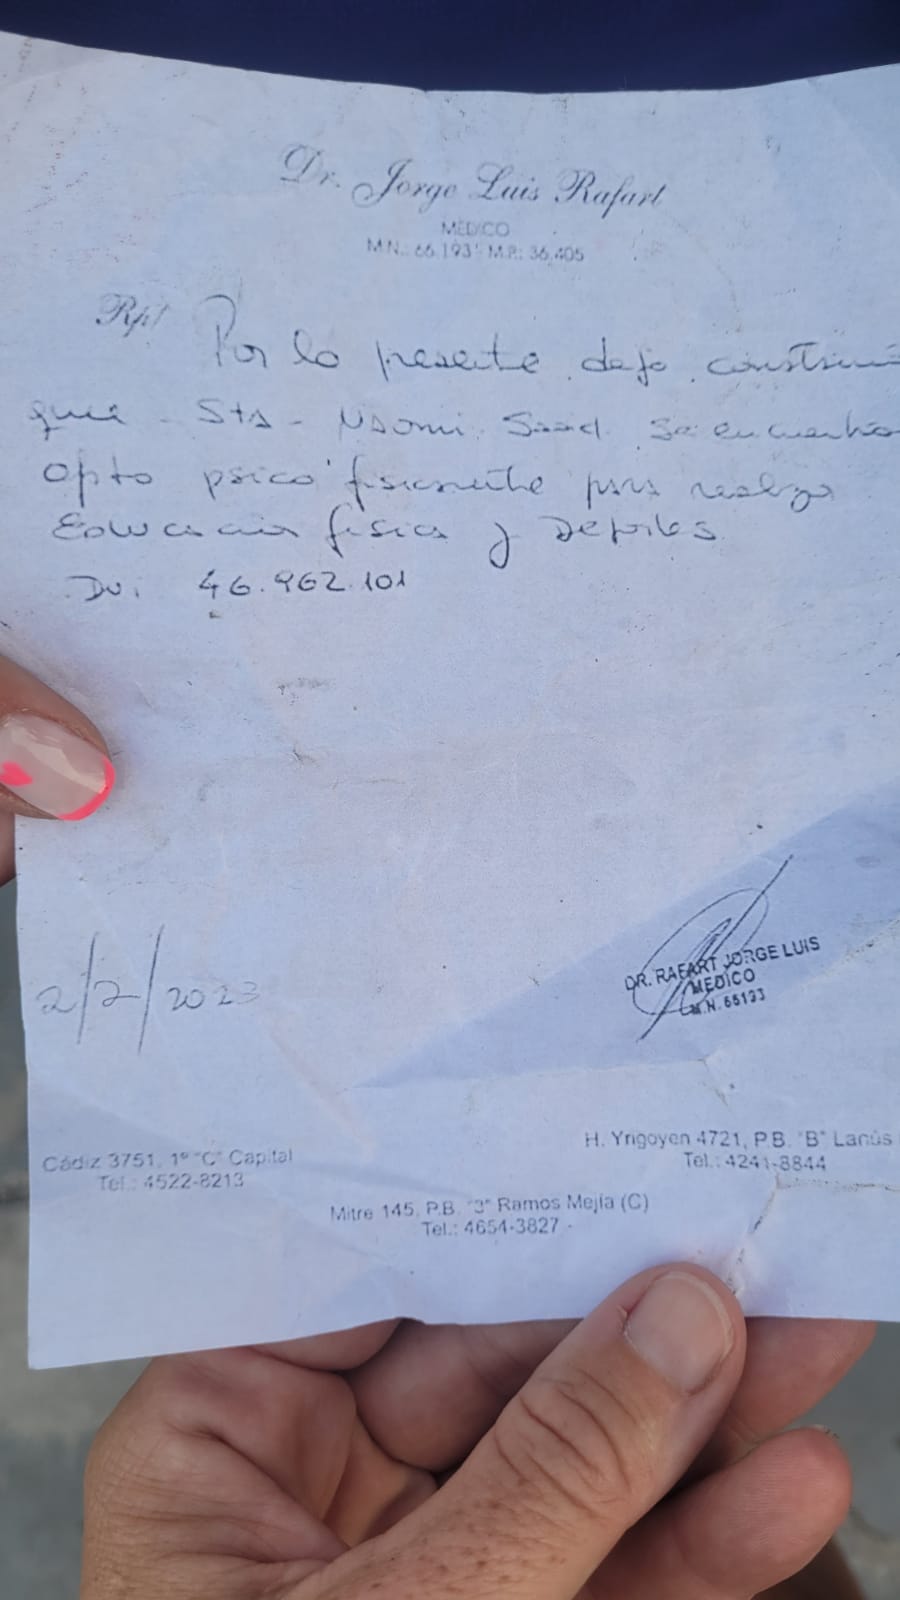 Dr. Jorge Luis Rafart
MEDICO
M.N.: 66.193 - M.P.: 36.405
Rp/
Por lo presente dejo
que Sta. Naomi Saad se encuentra
apto psico fisicamente para realizar
Educacion fisica y Deportes
46.962.101
2/2/2023
DR. RAFART JORGE LUIS
MEDICO
M.N. 66193
H. Yrigoyen 4721, P.B. "B" Lanús
Tel.: 4241-8844
Cádiz 3751, 1º "C" Capital
Tel.: 4522-8213
Mitre 145, P.B. "3" Ramos Mejía (C)
Tel.: 4654-3827